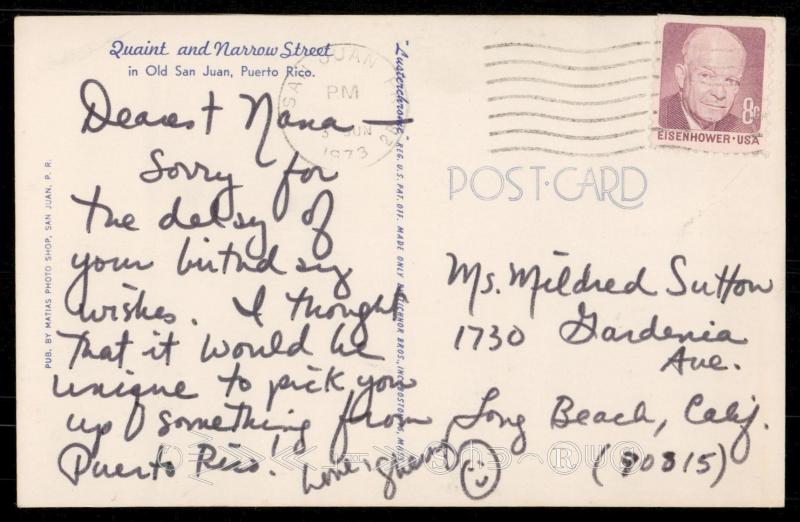 Quaint and Narrow Street
in Old San Juan, Puerto Rico.
Dearest Nana —
Sorry for
the delay of
your birthday
wishes. I thought
that it would be
unique to pick you
up something from
Puerto Rico.
Love,
SAN JUAN
PM
JUN
1973
8¢
EISENHOWER·USA
POST-CARD
Ms. Mildred Sutton
1730 Gardenia
Ave.
Long Beach, Calif.
(90815)
PUB. BY MATIAS PHOTO SHOP, SAN JUAN, P. R.
"Lusterchrome" REG. U.S. PAT. OFF. MADE ONLY BY TICHNOR BROS., INC., BOSTON, MASS.